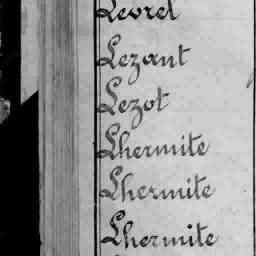 Levrel
Lezant
Lezot
Lhermite
Lhermite
Lhermite